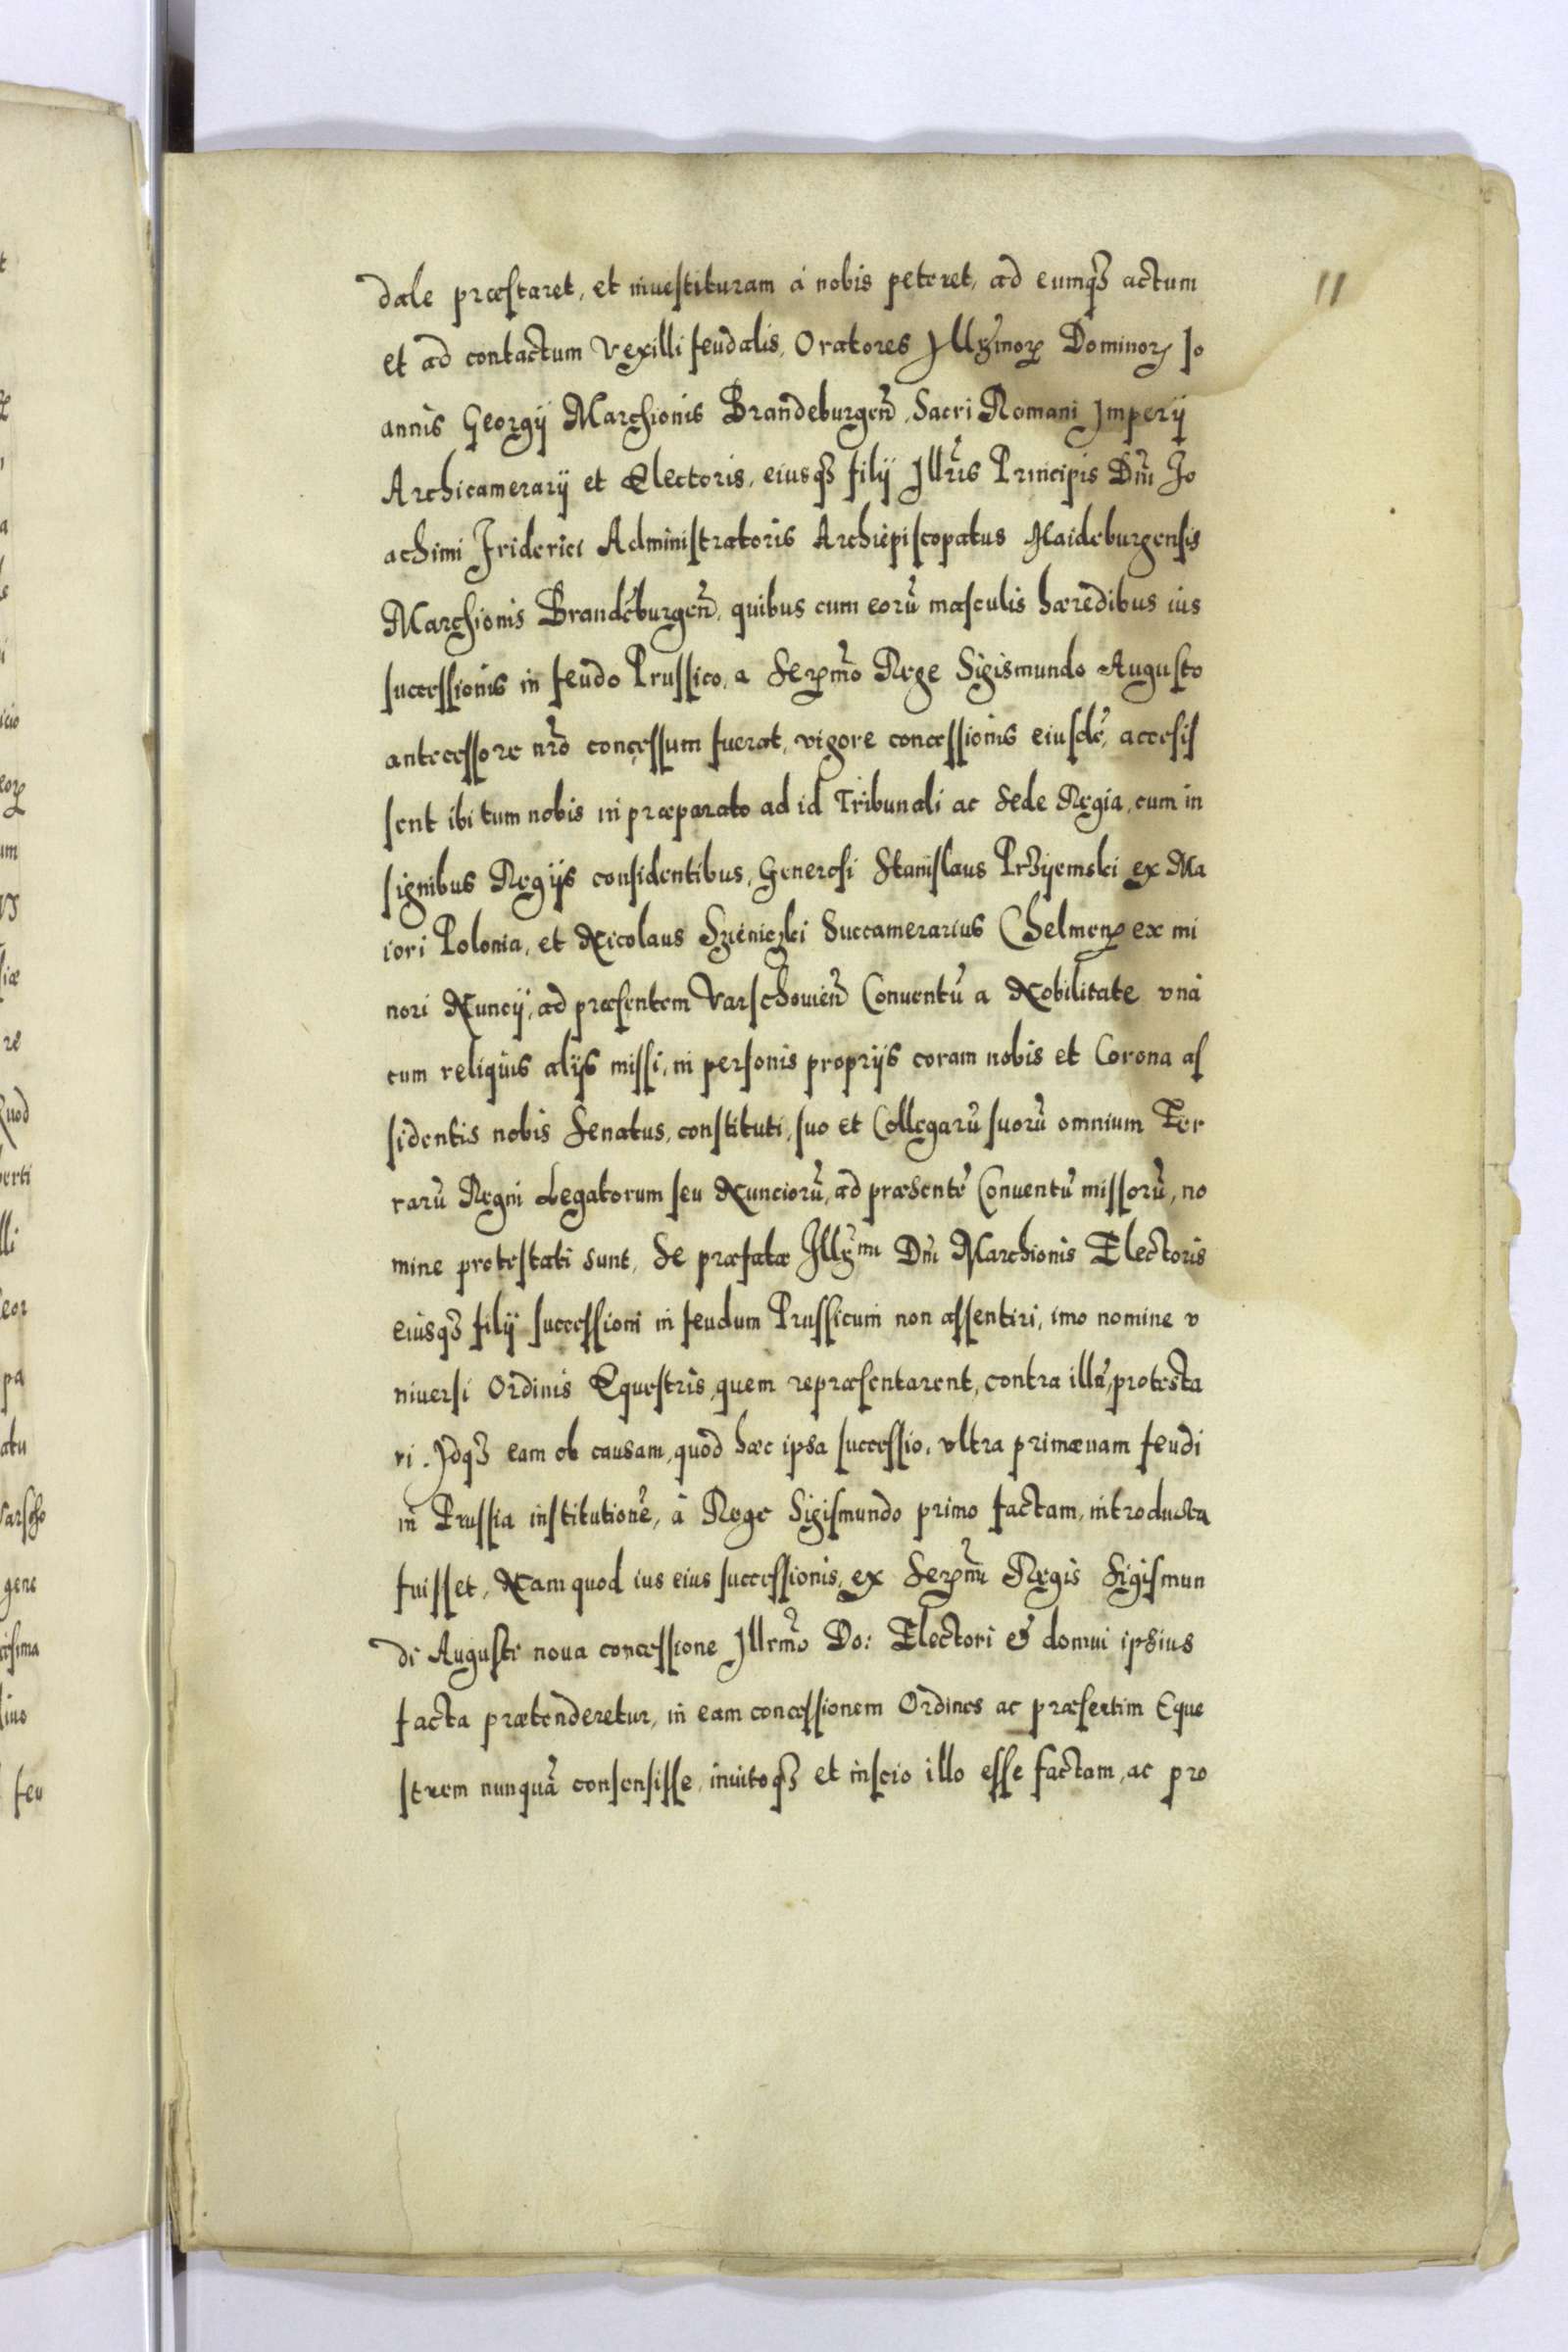 11
dale præstaret, et inuestituram á nobis peteret, ad eumq₃ actum
et ad contactum Vexilli feudalis, Oratores Jllr̃morꝝ Dominorꝝ Jo
annis Georgij Marchionis Brandeburgeñ, Sacri Romani Jmperij
Archicamerarij et Electoris, eiusq₃ filij Jllr̃is Principis Dñi Jo
achimi Friderici Administratoris Archiepiscopatus Maideburgensis
Marchionis Brandeburgeñ, quibus cum eorũ masculis hæredibus ius
successionis in feudo Prussico, a Serꝫmo Rege Sigismundo Augusto
antecessore nr̃o concessum fuerat, vigore concessionis eiusdẽ, accesis
sent ibi tum nobis in præparato ad id Tribunali ac Sede Regia, cum in
signibus Regijs considentibus, Generosi Stanislaus Prziyemski ex Ma
iori Polonia, et Nicolaus Szieniczki Succamerarius Chelmenꝫ ex mi
nori Nuncij, ad præsentem Varschouień Conuentũ a Nobilitate vnà
cum reliquis alijs missi, in personis proprijs coram nobis et Corona as
sidentis nobis Senatus, constituti, suo et Collegarũ suorũ omnium Ter
rarũ Regni Legatorum seu Nunciorũ, ad præsentẽ Conuentũ missorũ, no
mine protestati sunt, Se præfatæ Jllr̃mi Dñi Marchionis Electoris
eiusq₃ filij successioni in feudum Prussicum non assentiri, imo nomine v
niuersi Ordinis Equestris, quem repræsentarent, contra illã, protesta
ri. Jdq₃ eam ob causam, quod hæc ipsa successio, vltra primæuam feudi
in Prussia institutionẽ, à Rege Sigismundo primo factam, introducta
fuisset, Nam quod ius eius successionis, ex Serꝫmi Regis Sigismun
di Augusti noua concessione Jllrmo Do: Electori & domui ipsius
facta prætenderetur, in eam concessionem Ordines ac præsertim Eque
strem nunquã consensisse, inuitoq₃ et inscio illo esse factam, ac pro